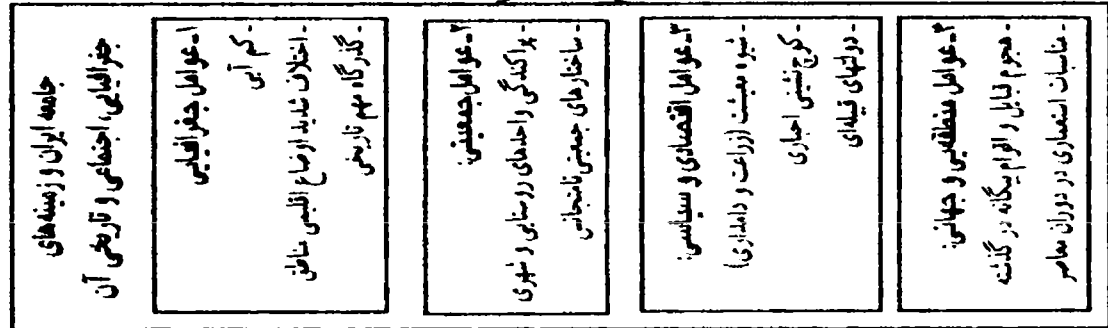 جامعه ایران و زمینه‌های
جغرافیایی، اجتماعی و تاریخی آن
۱- عوامل جغرافیایی
- کم آبی
- اختلاف شدید اوضاع اقلیمی مناطق
- گذرگاه مهم تاریخی
۲- عوامل جمعیتی:
- پراکندگی واحدهای روستایی و شهری
- ساختارهای جمعیتی نامتجانس
۳- عوامل اقتصادی و سیاسی:
- شیوه معیشت (زراعت و دامداری)
- کوچ‌نشینی اجباری
- دولتهای قبیله‌ای
۴- عوامل منطقه‌یی و جهانی:
- هجوم قبایل و اقوام بیگانه در گذشته
- مناسبات استعماری در دوران معاصر